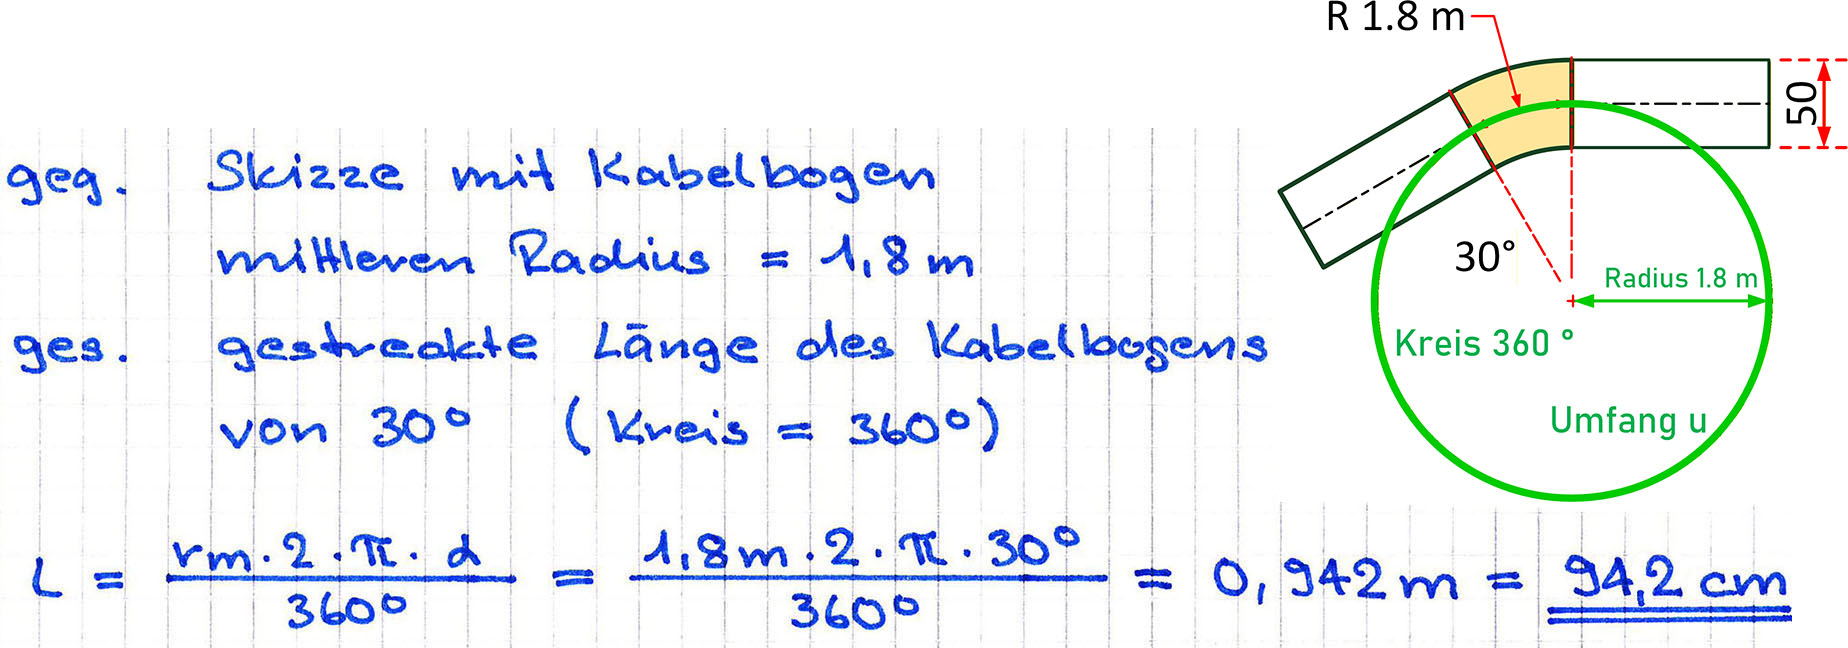 R 1.8 m
50
30°
Radius 1.8 m
Kreis 360 °
Umfang u
geg. Skizze mit Kabelbogen
mittleren Radius = 1,8 m
ges. gestreckte Länge des Kabelbogens
von 30° (Kreis = 360°)
L = rm · 2 · π · α / 360° = 1,8m · 2 · π · 30° / 360° = 0,942 m = 94,2 cm